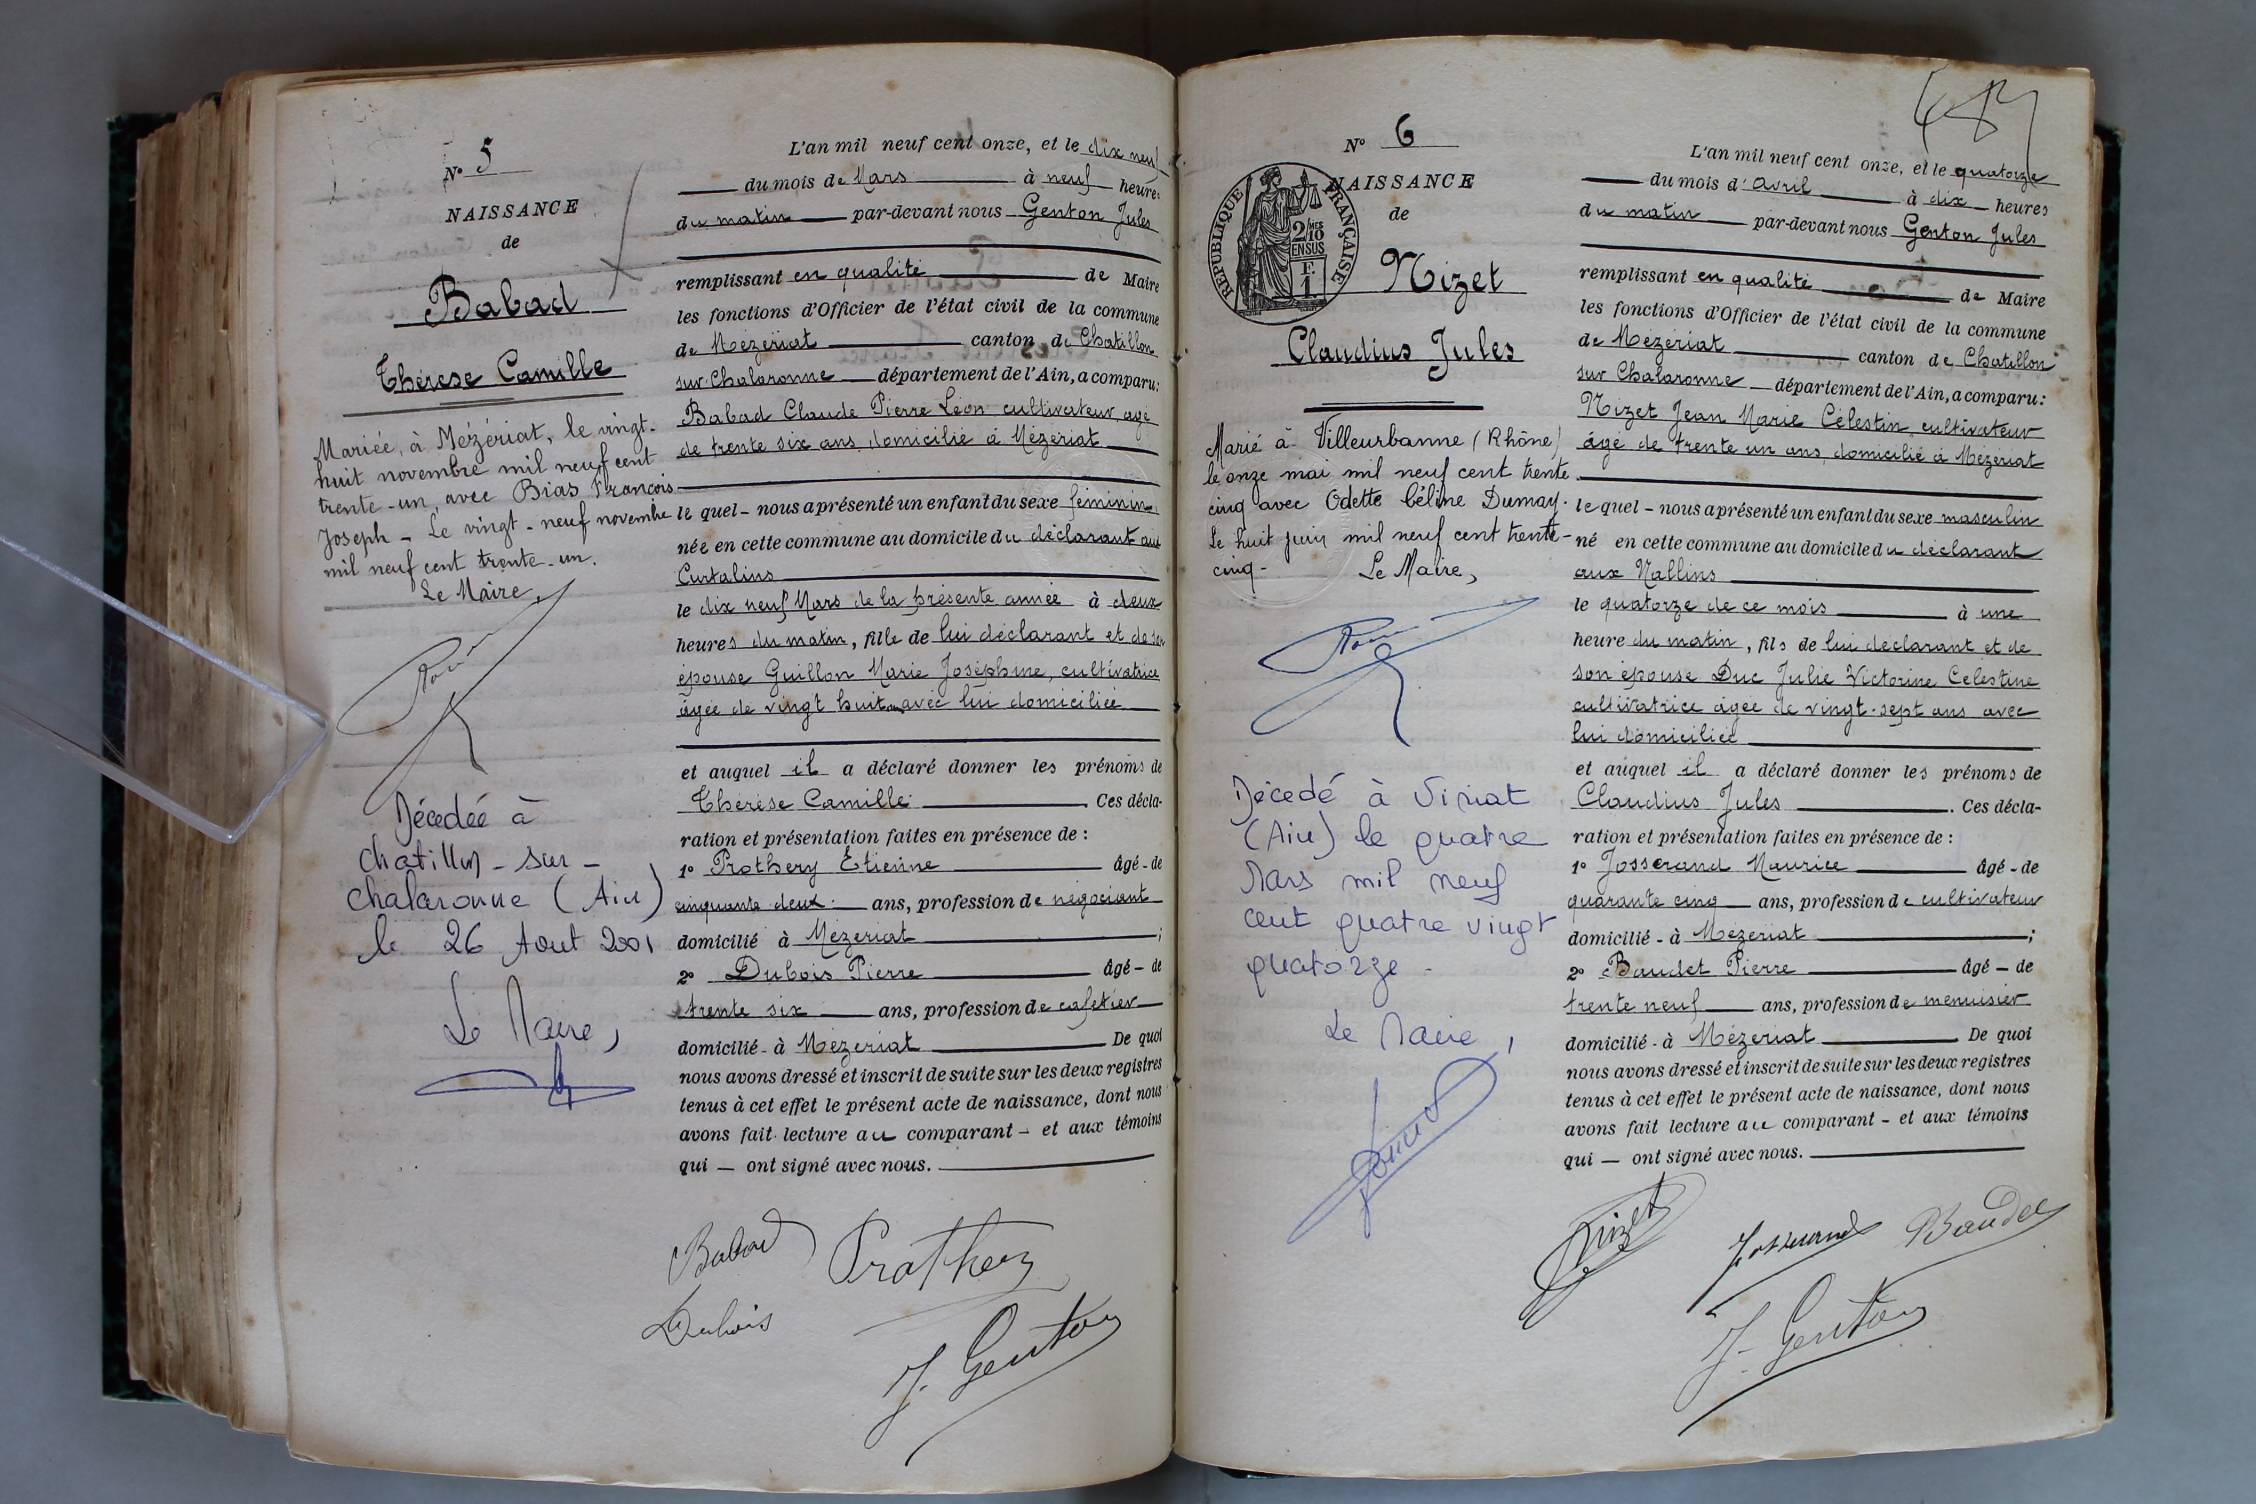 N° 5
NAISSANCE
de
Babad
Thérèse Camille
Mariée, à Mézériat, le vingt-
huit novembre mil neuf cent
trente-un, avec Bias François
Joseph - Le vingt-neuf novembre
mil neuf cent trente-un.
Le Maire,
Décedée à
Chatillon-sur-
Chalaronne (Ain)
le 26 Aout 2001
Le Maire,
L'an mil neuf cent onze, et le dix neuf
du mois de Mars à neuf heures
du matin par-devant nous Genton Jules
remplissant en qualité de Maire
les fonctions d'Officier de l'état civil de la commune
de Mézériat canton de Chatillon
sur Chalaronne département de l'Ain, a comparu:
Babad Claude Pierre Léon cultivateur, âgé
de trente six ans, domicilié à Mézériat
le quel - nous a présenté un enfant du sexe féminin
née en cette commune au domicile du déclarant aux
Curtalins
le dix neuf Mars de la présente année à deux
heures du matin, fille de lui déclarant et de son
épouse Guillon Marie Joséphine, cultivatrice
âgée de vingt huit ans avec lui domiciliée
et auquel il a déclaré donner les prénoms de
Thérèse Camille. Ces décla-
ration et présentation faites en présence de :
1° Prothery Etienne âgé - de
cinquante deux ans, profession de négociant
domicilié à Mézériat ;
2° Dubois Pierre âgé - de
trente six ans, profession de cafetier
domicilié - à Mézériat De quoi
nous avons dressé et inscrit de suite sur les deux registres
tenus à cet effet le présent acte de naissance, dont nous
avons fait lecture au comparant - et aux témoins
qui — ont signé avec nous.
Babad Prothery
Dubois
J. Genton
487
N° 6
NAISSANCE
de
RÉPUBLIQUE FRANÇAISE
2/10 MES
EN SUS
F.
1
Nizet
Claudius Jules
Marié à Villeurbanne (Rhône)
le onze mai mil neuf cent trente
cinq avec Odette Céline Dumay.
Le huit juin mil neuf cent trente-
cinq -
Le Maire,
Décedé à Viriat
(Ain) le quatre
Mars mil neuf
cent quatre vingt
quatorze -
Le Maire,
L'an mil neuf cent onze, et le quatorze
du mois d'Avril à dix heures
du matin par-devant nous Genton Jules
remplissant en qualité de Maire
les fonctions d'Officier de l'état civil de la commune
de Mézériat canton de Chatillon
sur Chalaronne département de l'Ain, a comparu:
Nizet Jean Marie Célestin, cultivateur
âgé de trente un ans, domicilié à Mézériat
le quel - nous a présenté un enfant du sexe masculin
né en cette commune au domicile du déclarant
aux Nallins
le quatorze de ce mois à une
heure du matin, fils de lui déclarant et de
son épouse Duc Julie Victorine Célestine
cultivatrice âgée de vingt-sept ans avec
lui domiciliée
et auquel il a déclaré donner les prénoms de
Claudius Jules. Ces décla-
ration et présentation faites en présence de :
1° Josserand Maurice âgé - de
quarante cinq ans, profession de cultivateur
domicilié - à Mézériat ;
2° Baudet Pierre âgé - de
trente neuf ans, profession de menuisier
domicilié - à Mézériat De quoi
nous avons dressé et inscrit de suite sur les deux registres
tenus à cet effet le présent acte de naissance, dont nous
avons fait lecture au comparant - et aux témoins
qui — ont signé avec nous.
Nizet Josserand Baudet
J. Genton